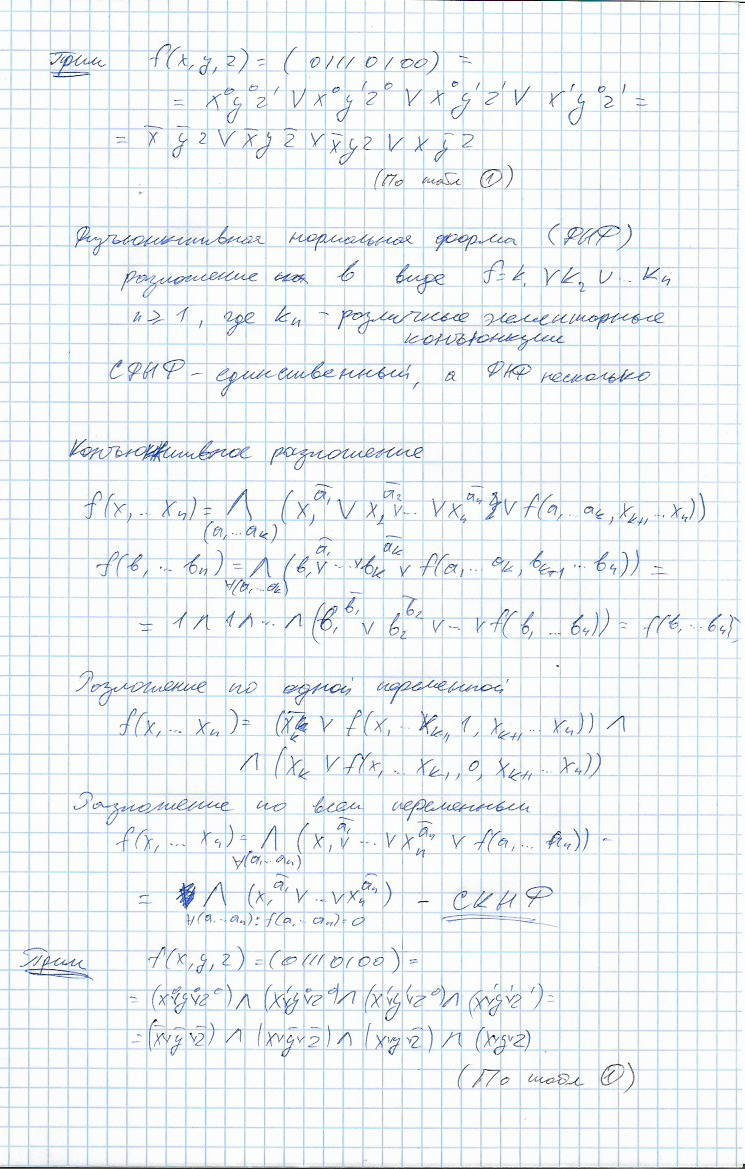 Прим f(x,y,z) = (01110100) =
= x⁰y⁰z¹ ∨ x⁰y¹z⁰ ∨ x⁰y¹z¹ ∨ x¹y⁰z¹ =
= x̄ ȳ z ∨ x̄ y z̄ ∨ x̄ y z ∨ x ȳ z
(По табл ①)
Дизъюнктивная нормальная форма (ДНФ)
разложение в виде f = k₁ ∨ k₂ ∨ ... kₙ
n ≥ 1, где kₙ - различные элементарные
конъюнкции
СДНФ - единственный, а ДНФ несколько
Конъюнктивное разложение
f(x₁ ... xₙ) = ∧ (x₁^ā₁ ∨ x₂^ā₂ ∨ ... ∨ xₙ^āₙ ∨ f(a₁ ... aₖ, xₖ₊₁ ... xₙ))
(a₁ ... aₖ)
f(b₁ ... bₙ) = ∧ (b₁^ā₁ ∨ ... ∨ bₖ^āₖ ∨ f(a₁ ... aₖ, bₖ₊₁ ... bₙ)) =
∀(a₁ ... aₖ)
= 1 ∧ 1 ∧ ... ∧ (b₁^b̄₁ ∨ b₂^b̄₂ ∨ ... ∨ f(b₁ ... bₙ)) = f(b₁ ... bₙ)
Разложение по одной переменной
f(x₁ ... xₙ) = (x̄ₖ ∨ f(x₁ ... xₖ₋₁, 1, xₖ₊₁ ... xₙ)) ∧
∧ (xₖ ∨ f(x₁ ... xₖ₋₁, 0, xₖ₊₁ ... xₙ))
Разложение по всем переменным
f(x₁ ... xₙ) = ∧ (x₁^ā₁ ∨ ... ∨ xₙ^āₙ ∨ f(a₁ ... aₙ)) =
∀(a₁ ... aₙ)
= ∧ (x₁^ā₁ ∨ ... ∨ xₙ^āₙ) - СКНФ
∀(a₁ ... aₙ): f(a₁ ... aₙ) = 0
Прим f(x,y,z) = (01110100) =
= (x⁰∨y⁰∨z⁰) ∧ (x¹∨y⁰∨z⁰) ∧ (x¹∨y¹∨z⁰) ∧ (x¹∨y¹∨z¹) =
= (x̄∨ȳ∨z̄) ∧ (x∨ȳ∨z̄) ∧ (x∨y∨z̄) ∧ (x∨y∨z)
(По табл ①)